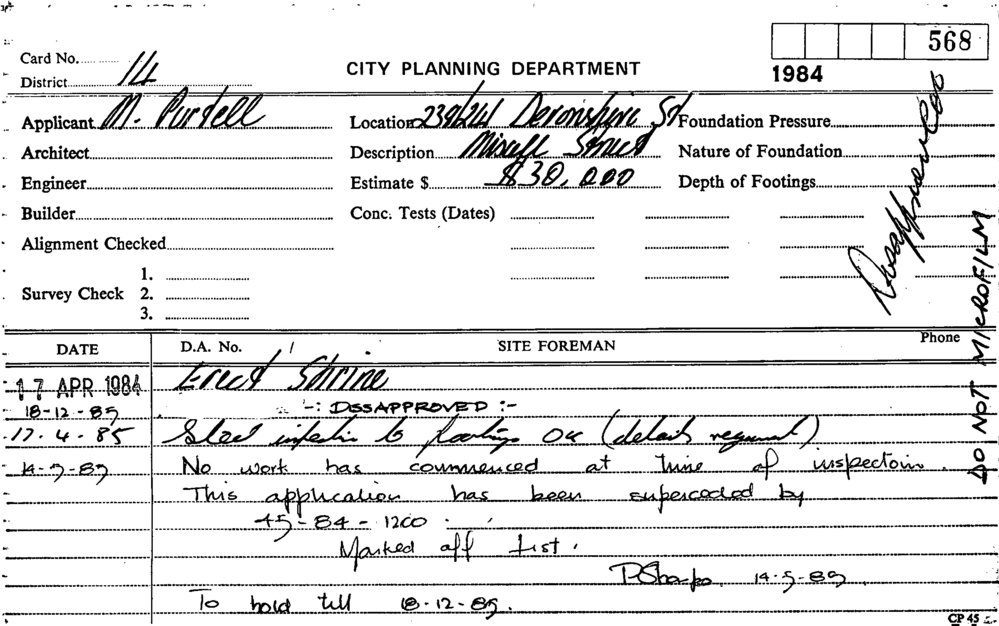 568
Card No.
CITY PLANNING DEPARTMENT
1984
District 14
Applicant M. Purtell
Location 239/241 Devonshire St
Foundation Pressure
Architect
Description Miscell Struct
Nature of Foundation
Engineer
Estimate $ $30,000
Depth of Footings
Builder
Conc. Tests (Dates)
Alignment Checked
1.
Survey Check 2.
3.
Disapproved
DO NOT MICROFILM
DATE D.A. No. / SITE FOREMAN Phone
17 APR 1984 Erect Shrine
18-12-89 -: DSSAPPROVED :-
17.4.85 Steel to footings OK (details required)
14-9-89 No work has commenced at time of inspectoin.
This application has been superceded by
45-84-1200.
Marked off list.
PSharpe 14.9.89
To hold till 18-12-89.
CP 45